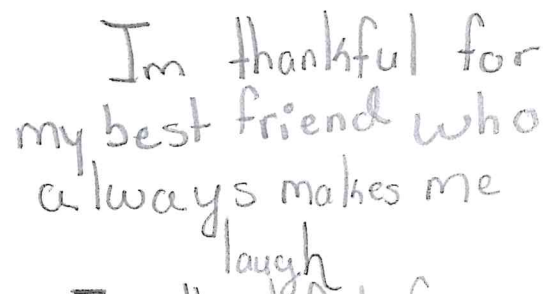 Im thankful for
my best friend who
always makes me
laugh